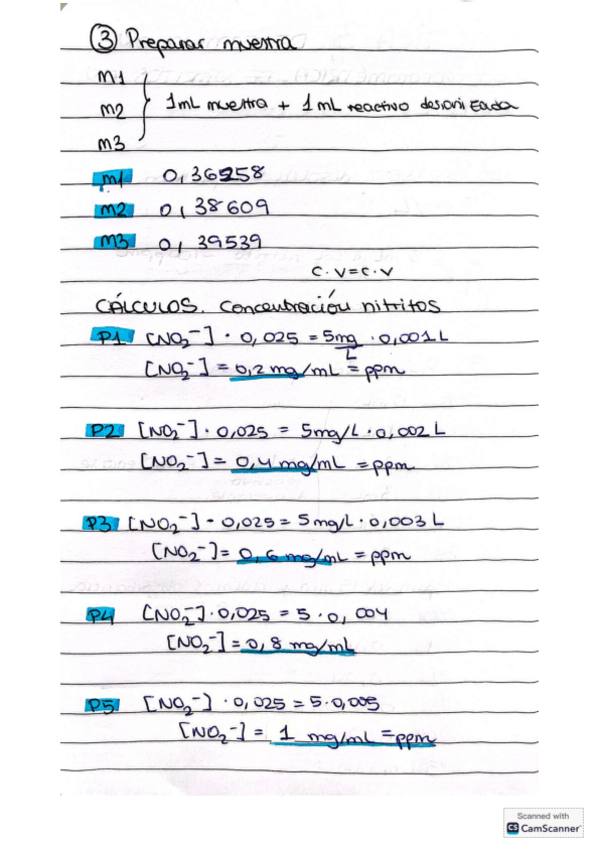 ③ Preparar muestra
m1
m2 } 1mL muestra + 1mL reactivo desionizada
m3
m1 0,36258
m2 0,38609
m3 0,39539
C.V=C.V
CÁLCULOS. Concentración nitritos
P1 [NO₂⁻] · 0,025 = 5mg/L · 0,001L
[NO₂⁻] = 0,2 mg/mL = ppm
P2 [NO₂⁻] · 0,025 = 5mg/L · 0,002L
[NO₂⁻] = 0,4 mg/mL = ppm
P3 [NO₂⁻] · 0,025 = 5mg/L · 0,003L
[NO₂⁻] = 0,6 mg/mL = ppm
P4 [NO₂⁻] · 0,025 = 5 · 0,004
[NO₂⁻] = 0,8 mg/mL
P5 [NO₂⁻] · 0,025 = 5 · 0,005
[NO₂⁻] = 1 mg/mL = ppm
Scanned with
CS CamScanner